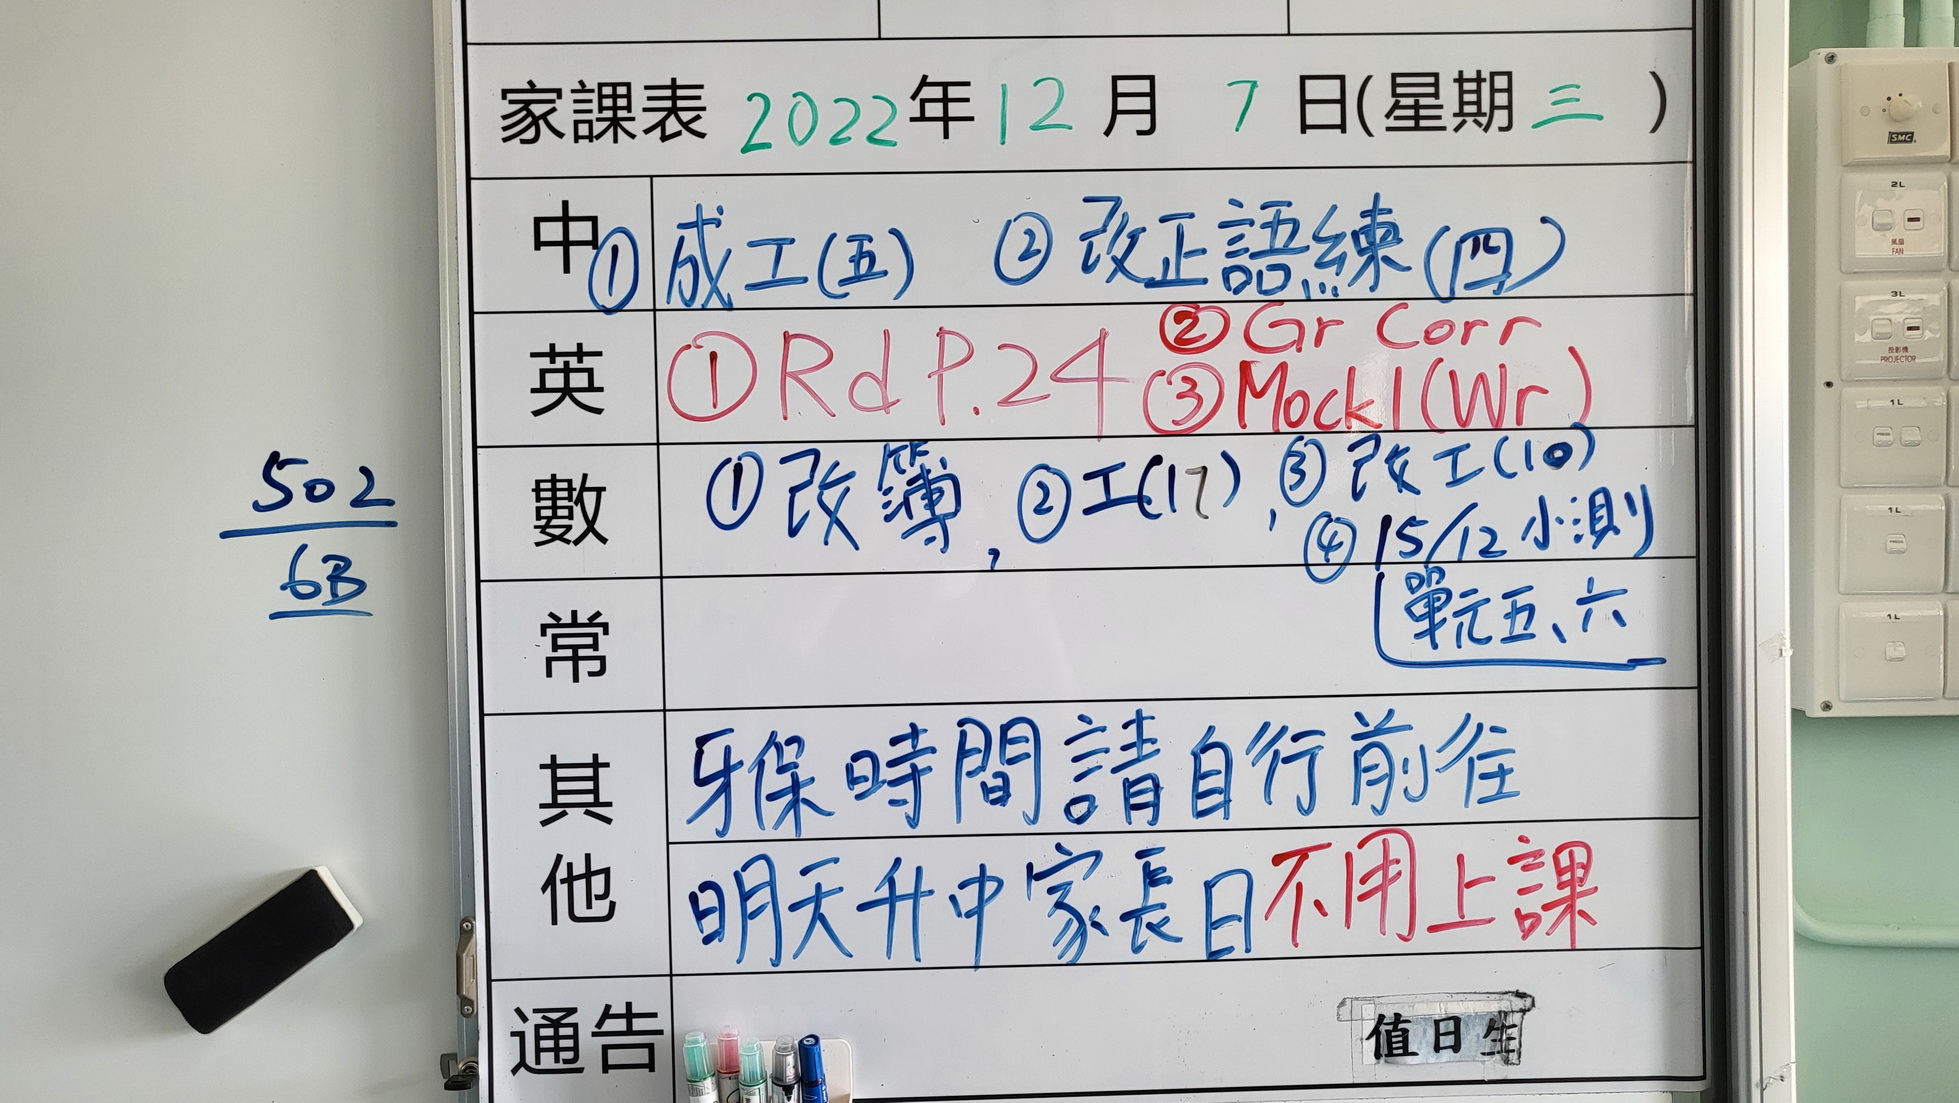 家課表 2022年12月 7 日(星期三 )
中 ① 成工(五) ② 改正語練(四)
英 ① Rd P.24 ② Gr Corr
③ Mock1(Wr)
數 ① 改簿, ② 工(17), ③ 改工(10)
④ 15/12 小測
單元五、六
常
其他
牙保時間請自行前往
明天升中家長日不用上課
通告
值日生
502
6B
SMC
2L
風扇
FAN
3L
投影機
PROJECTOR
1L
1L
1L